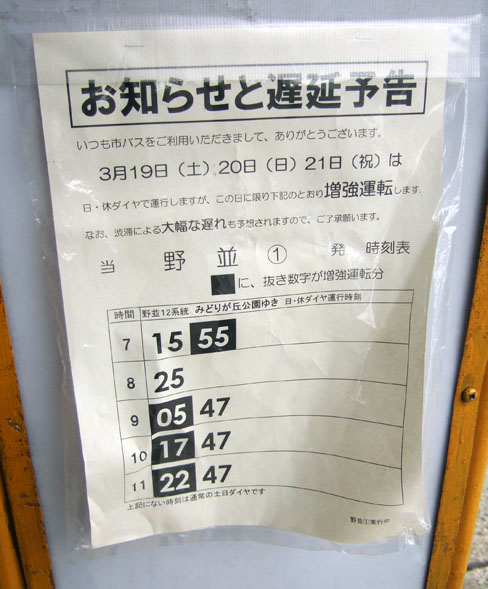 お知らせと遅延予告
いつも市バスをご利用いただきまして、ありがとうございます。
3月19日（土）20日（日）21日（祝）は
日・休ダイヤで運行しますが、この日に限り下記のとおり増強運転します。
なお、渋滞による大幅な遅れも予想されますので、ご了承願います。
当 野並 ① 発 時刻表
■に、抜き数字が増強運転分
時間 野並12系統 みどりが丘公園ゆき 日・休ダイヤ運行時刻
7 15 55
8 25
9 05 47
10 17 47
11 22 47
上記にない時刻は通常の土日ダイヤです